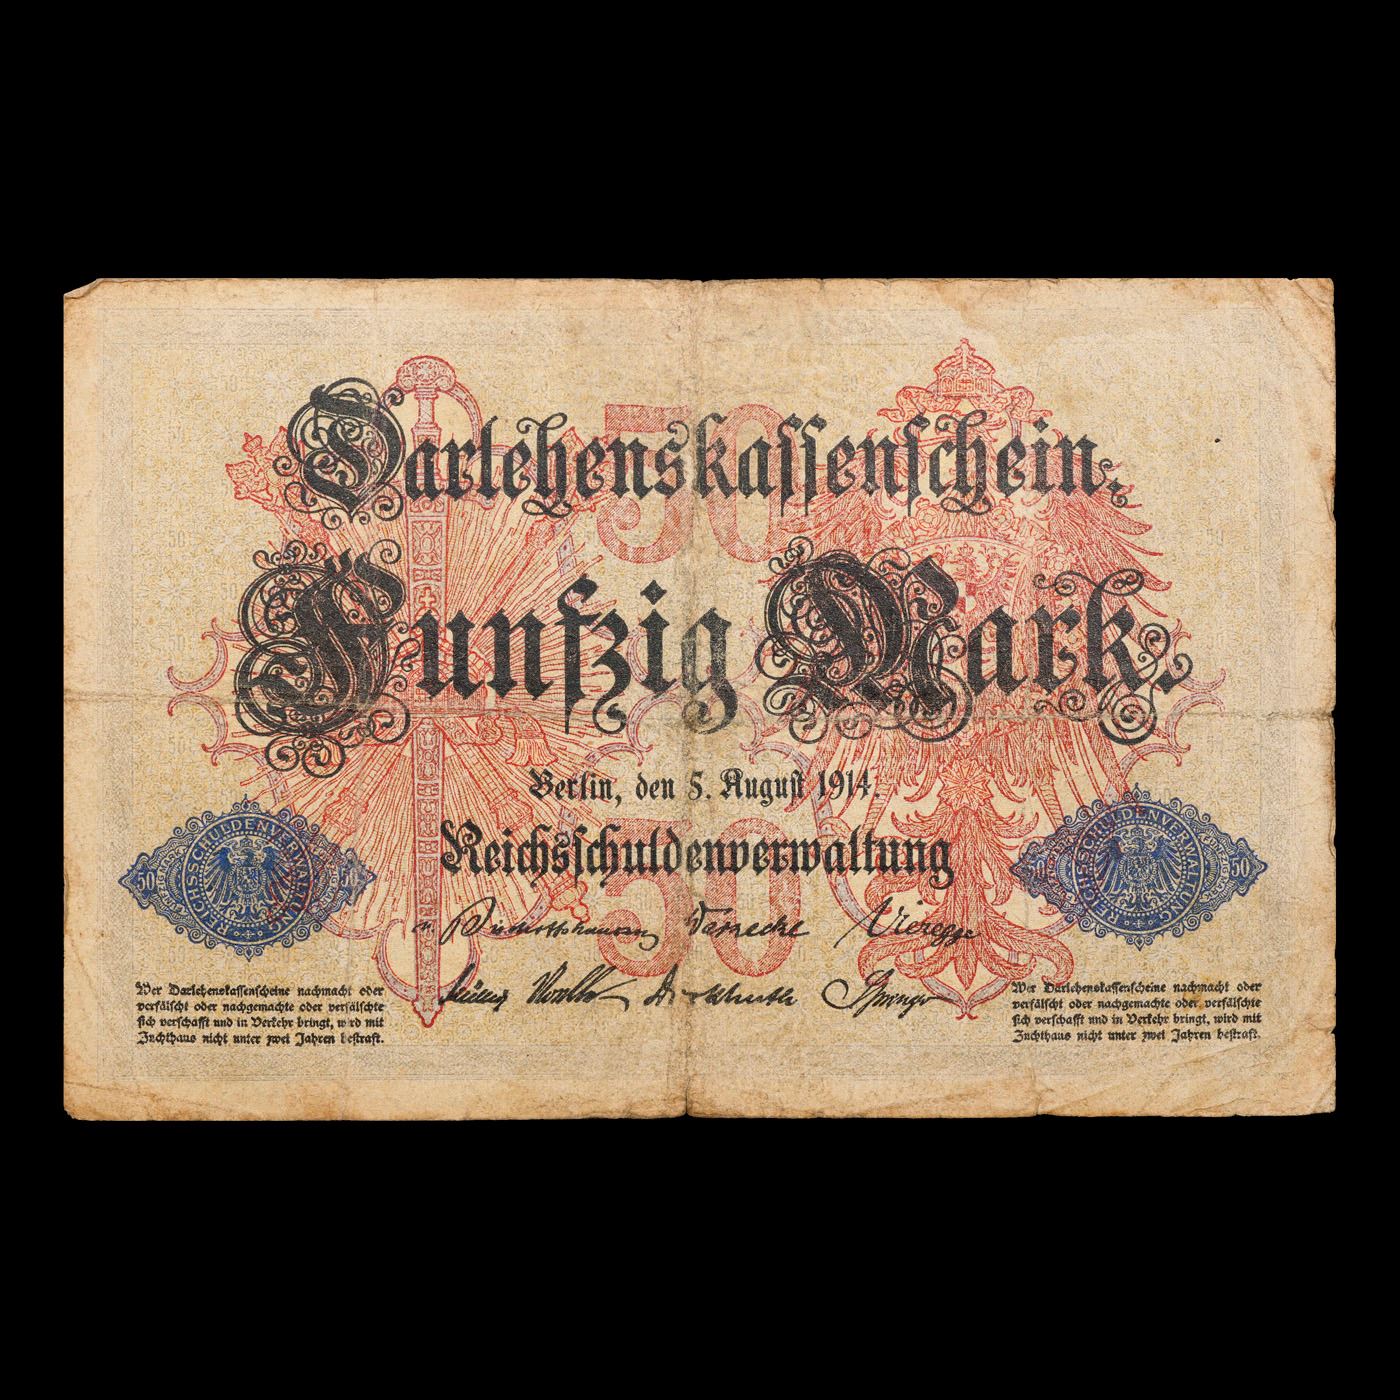 50
Darlehenskassenschein.
Funfzig Mark.
Berlin, den 5. August 1914.
Reichsschuldenverwaltung
50
v. Bischoffshausen Warnecke Vieregge
Müller Dickhuth Springer
REICHSSCHULDENVERWALTUNG
50 50
REICHSSCHULDENVERWALTUNG
50 50
Wer Darlehenskassenscheine nachmacht oder
verfälscht oder nachgemachte oder verfälschte
sich verschafft und in Verkehr bringt, wird mit
Zuchthaus nicht unter zwei Jahren bestraft.
Wer Darlehenskassenscheine nachmacht oder
verfälscht oder nachgemachte oder verfälschte
sich verschafft und in Verkehr bringt, wird mit
Zuchthaus nicht unter zwei Jahren bestraft.